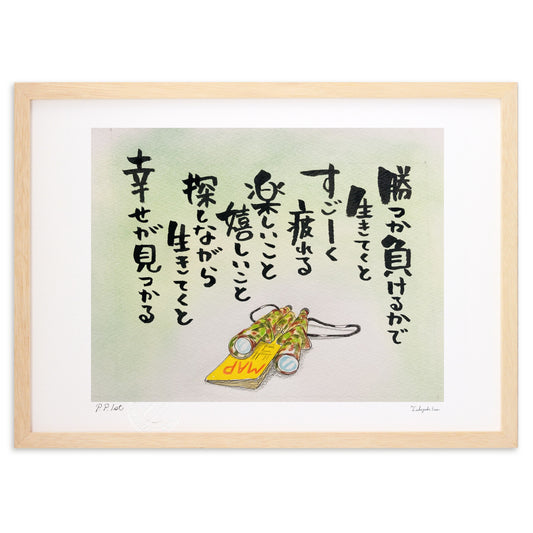 勝つか負けるかで
生きてくと
すごーく
疲れる
楽しいこと
嬉しいこと
探しながら
生きてくと
幸せが見つかる
MAP
P.P. 1st